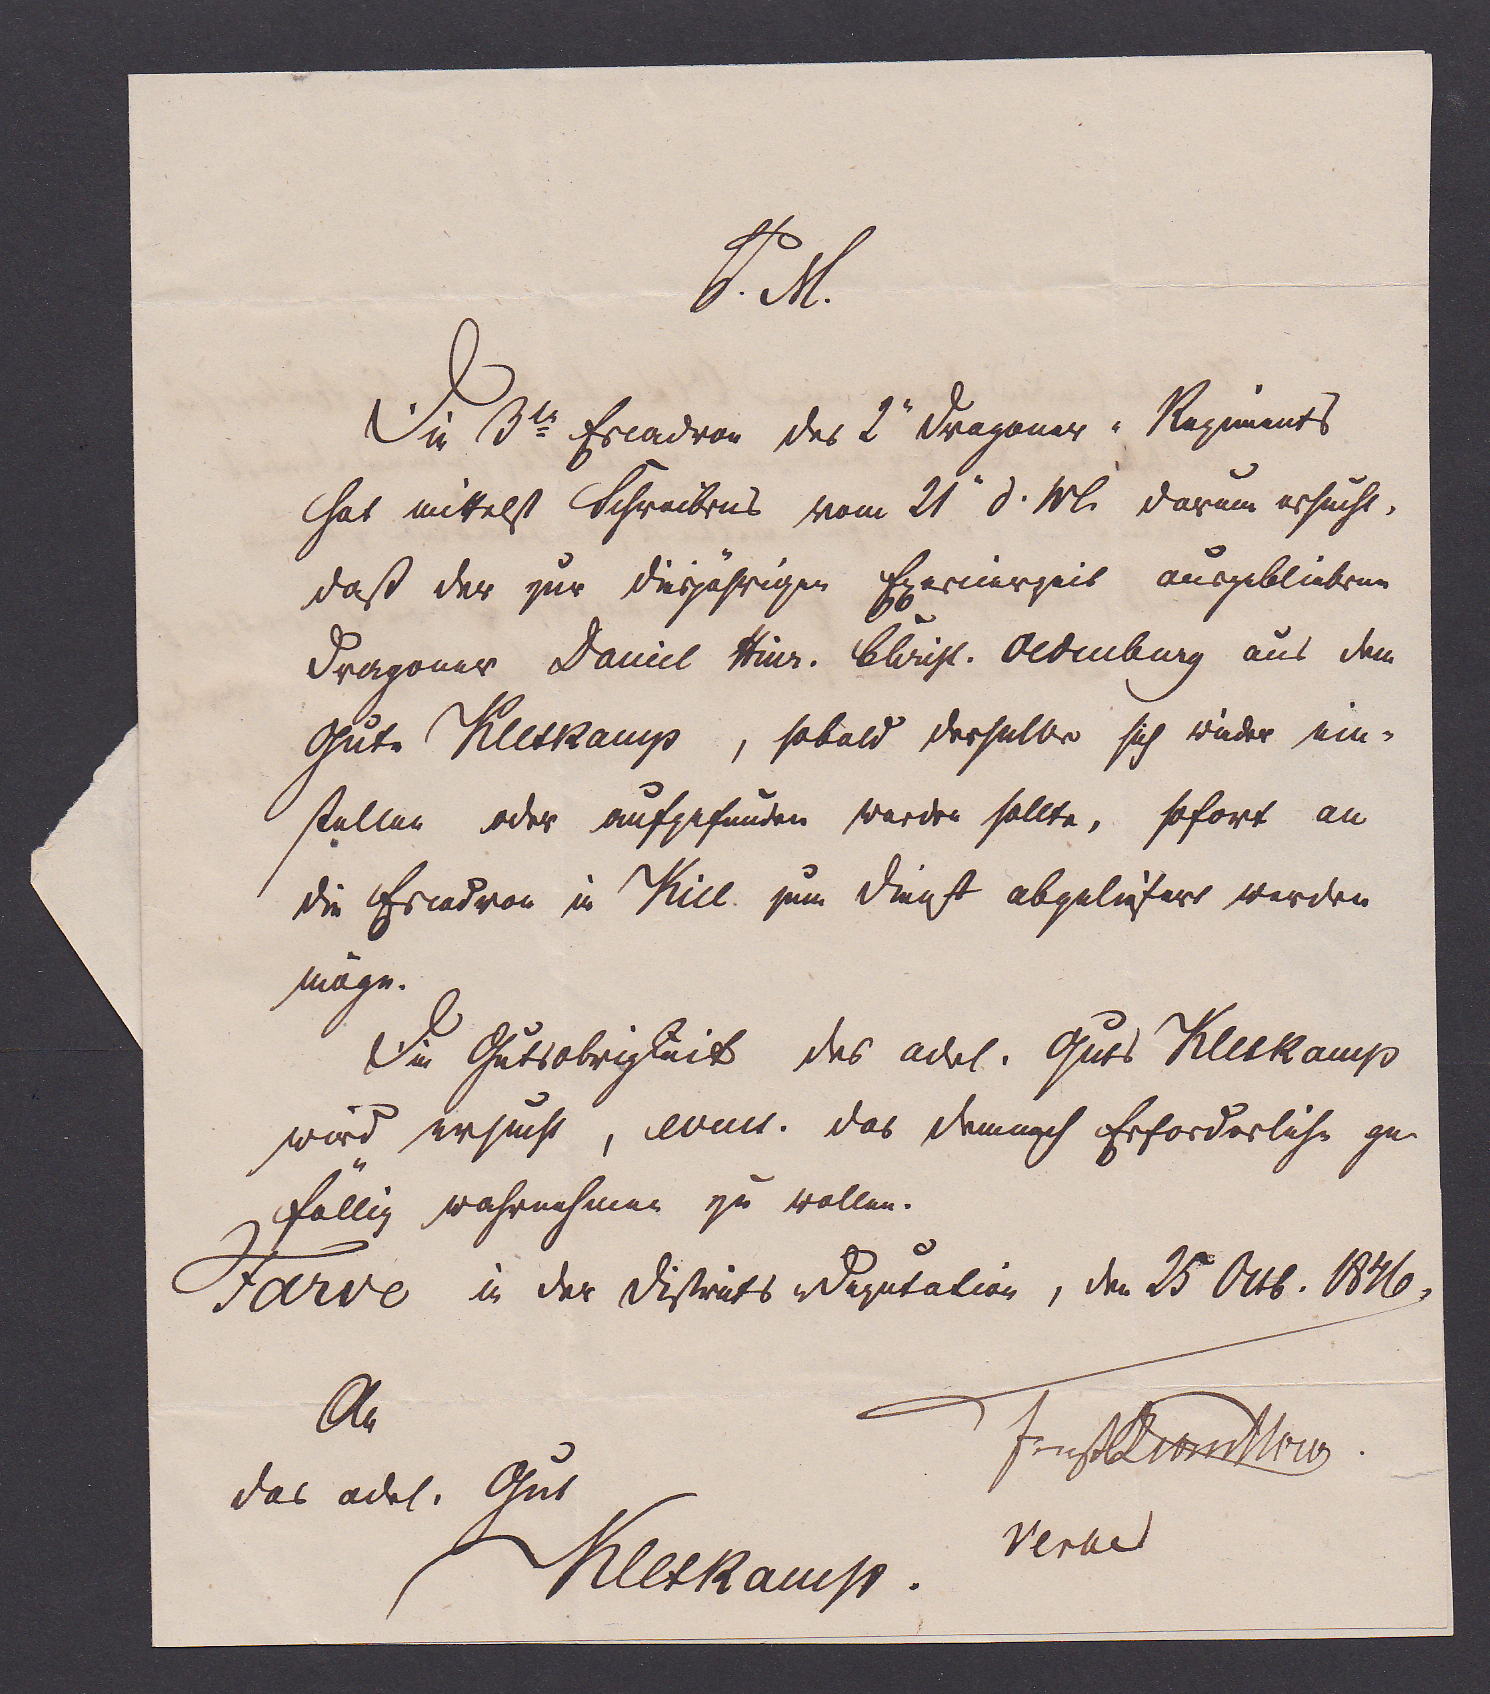 P. M.
Die 3te Escadron des 2n Dragoner-Regiments
hat mittelst Schreibens vom 21n d. Ms. darum ersucht,
daß der zur diesjährigen Exercierzeit ausgebliebene
Dragoner Daniel Hinr. Christ. Oldenburg aus dem
Gute Kletkamp, sobald derselbe sich wieder ein-
stellen oder aufgefunden werden sollte, sofort an
die Escadron in Kiel zum Dienst abgeliefert werden
möge.
Die Gutsobrigkeit des adel. Guts Kletkamp
wird ersucht, event. das demnach Erforderliche ge-
fällig wahrnehmen zu wollen.
Farve in der Districts-Deputation, den 25 Octb. 1846.
An
das adel. Gut
Kletkamp.